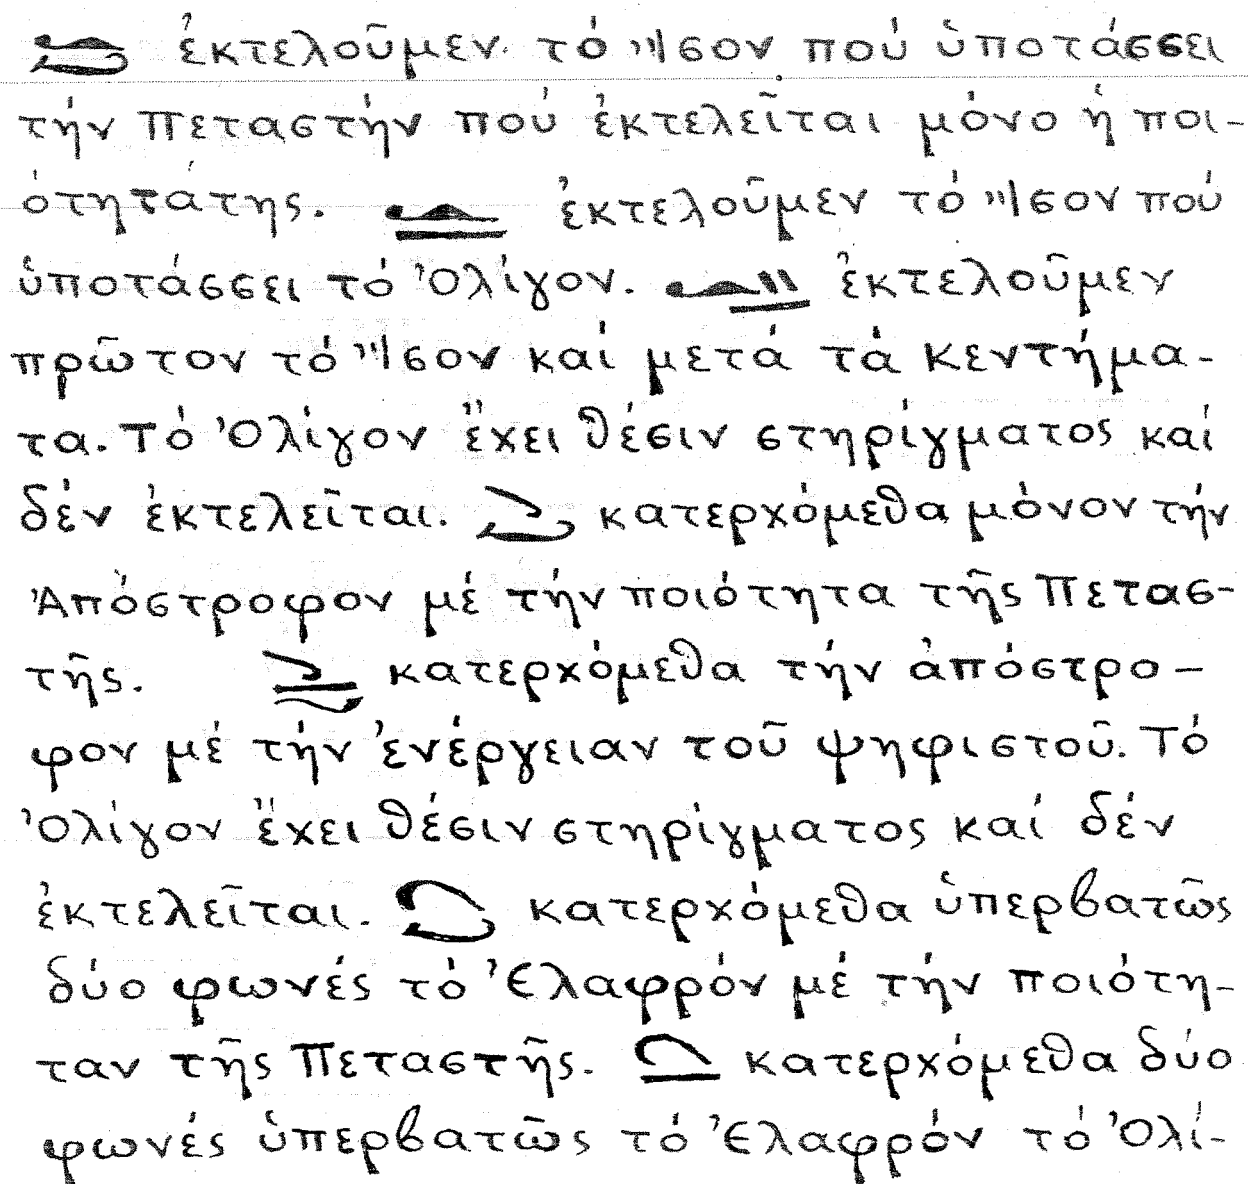 ἐκτελοῦμεν τό Ἴσον πού ὑποτάσσει
τήν Πεταστήν πού ἐκτελεῖται μόνο ἡ ποι-
ότητάτης. ἐκτελοῦμεν τό Ἴσον πού
ὑποτάσσει τό Ὀλίγον. ἐκτελοῦμεν
πρῶτον τό Ἴσον καί μετά τά κεντήμα-
τα. Τό Ὀλίγον ἔχει θέσιν στηρίγματος καί
δέν ἐκτελεῖται. κατερχόμεθα μόνον τήν
Ἀπόστροφον μέ τήν ποιότητα τῆς Πετασ-
τῆς. κατερχόμεθα τήν ἀπόστρο-
φον μέ τήν ἐνέργειαν τοῦ ψηφιστοῦ. Τό
Ὀλίγον ἔχει θέσιν στηρίγματος καί δέν
ἐκτελεῖται. κατερχόμεθα ὑπερβατῶς
δύο φωνές τό Ἐλαφρόν μέ τήν ποιότη-
ταν τῆς Πεταστῆς. κατερχόμεθα δύο
φωνές ὑπερβατῶς τό Ἐλαφρόν τό Ὀλί-